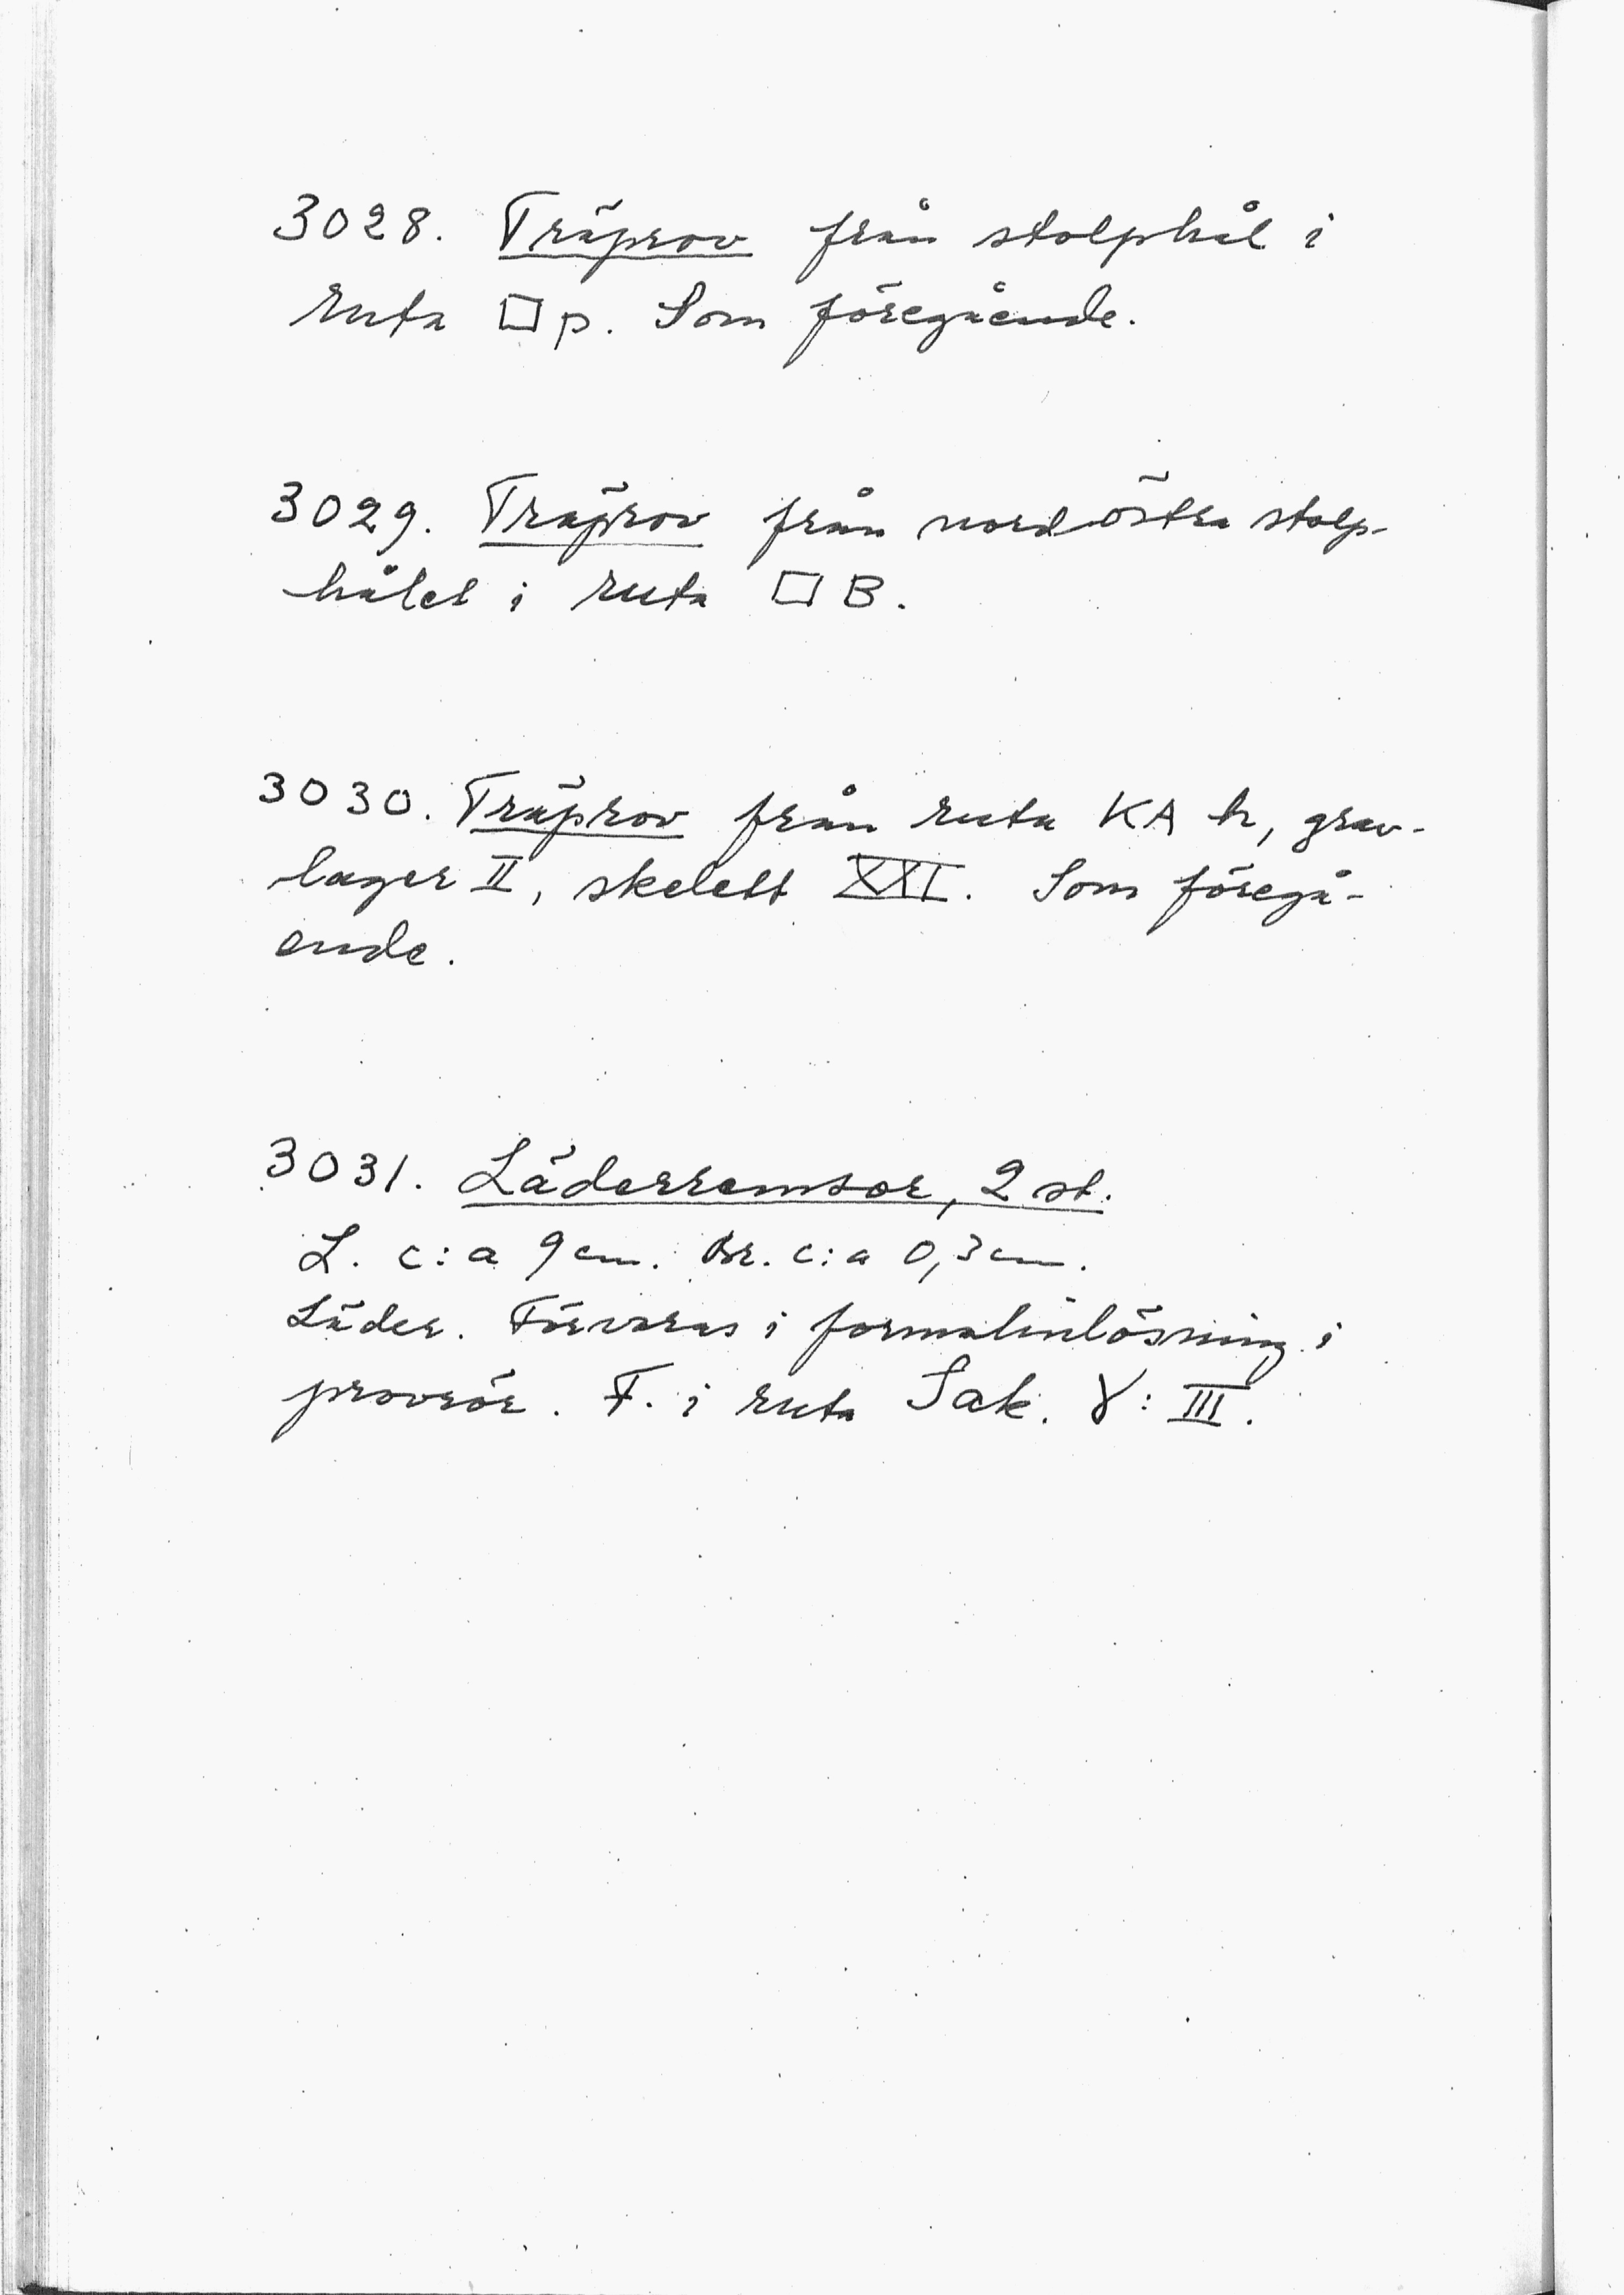 3028. Träprov från stolphål i
ruta □ p. Som föregående.
3029. Träprov från nordöstra stolp-
hålet i ruta □ B.
3030. Träprov från ruta KA h, grav-
lager II, skelett XXI. Som föregå-
ende.
3031. Läderremsor, 2 st.
L. c:a 9 cm. Br. c:a 0,3 cm.
Läder. Förvaras i formalinlösning i
provrör. F. i ruta Sak. γ: III.